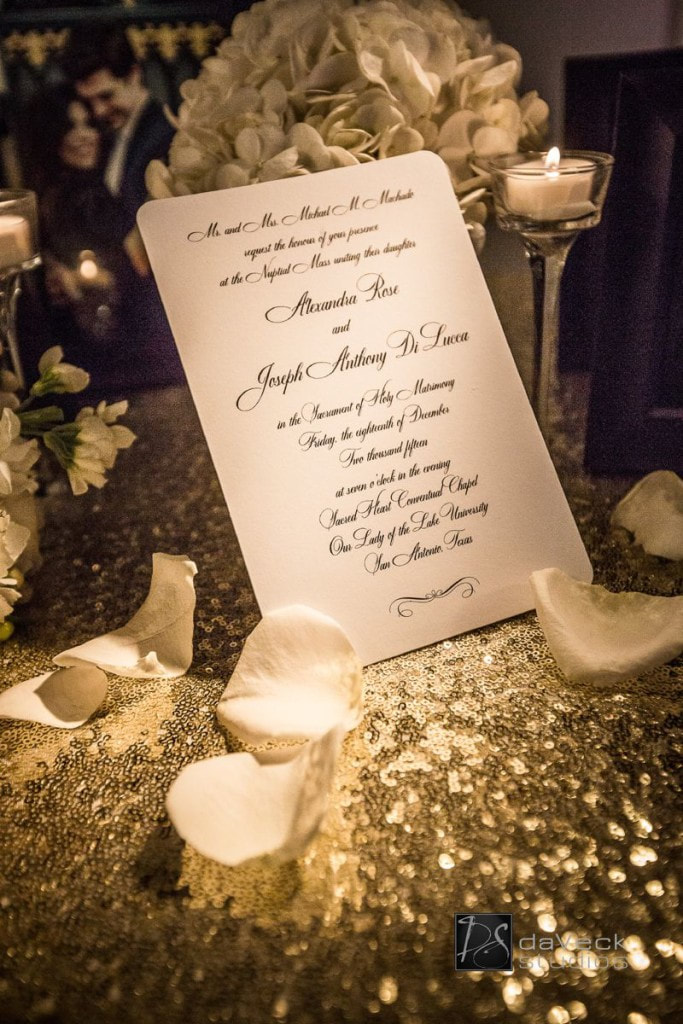 Mr. and Mrs. Michael M. Machado
request the honour of your presence
at the Nuptial Mass uniting their daughter
Alexandra Rose
and
Joseph Anthony Di Lucca
in the Sacrament of Holy Matrimony
Friday, the eighteenth of December
Two thousand fifteen
at seven o'clock in the evening
Sacred Heart Conventual Chapel
Our Lady of the Lake University
San Antonio, Texas
DS daVeck
studios